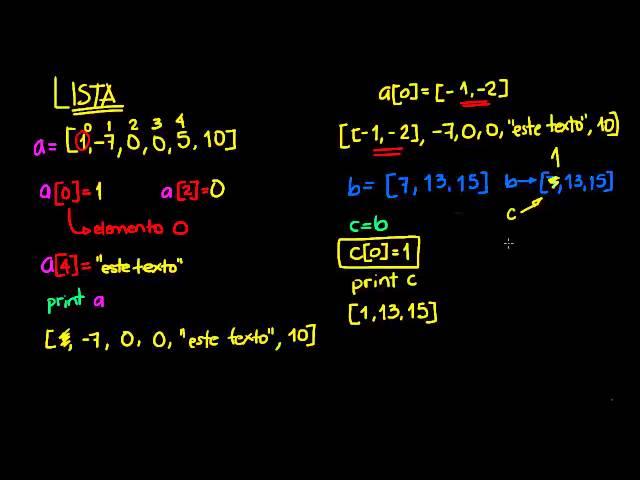 LISTA
0 1 2 3 4
a= [1,-7,0,0,5,10]
a[0]=1 a[2]=0
elemento 0
a[4]="este texto"
print a
[ , -7, 0, 0, "este texto", 10]
a[0]=[-1,-2]
[[-1,-2], -7,0,0,"este texto",10]
1
b= [7,13,15] b→[ ,13,15]
c
c=b
c[0]=1
print c
[1,13,15]